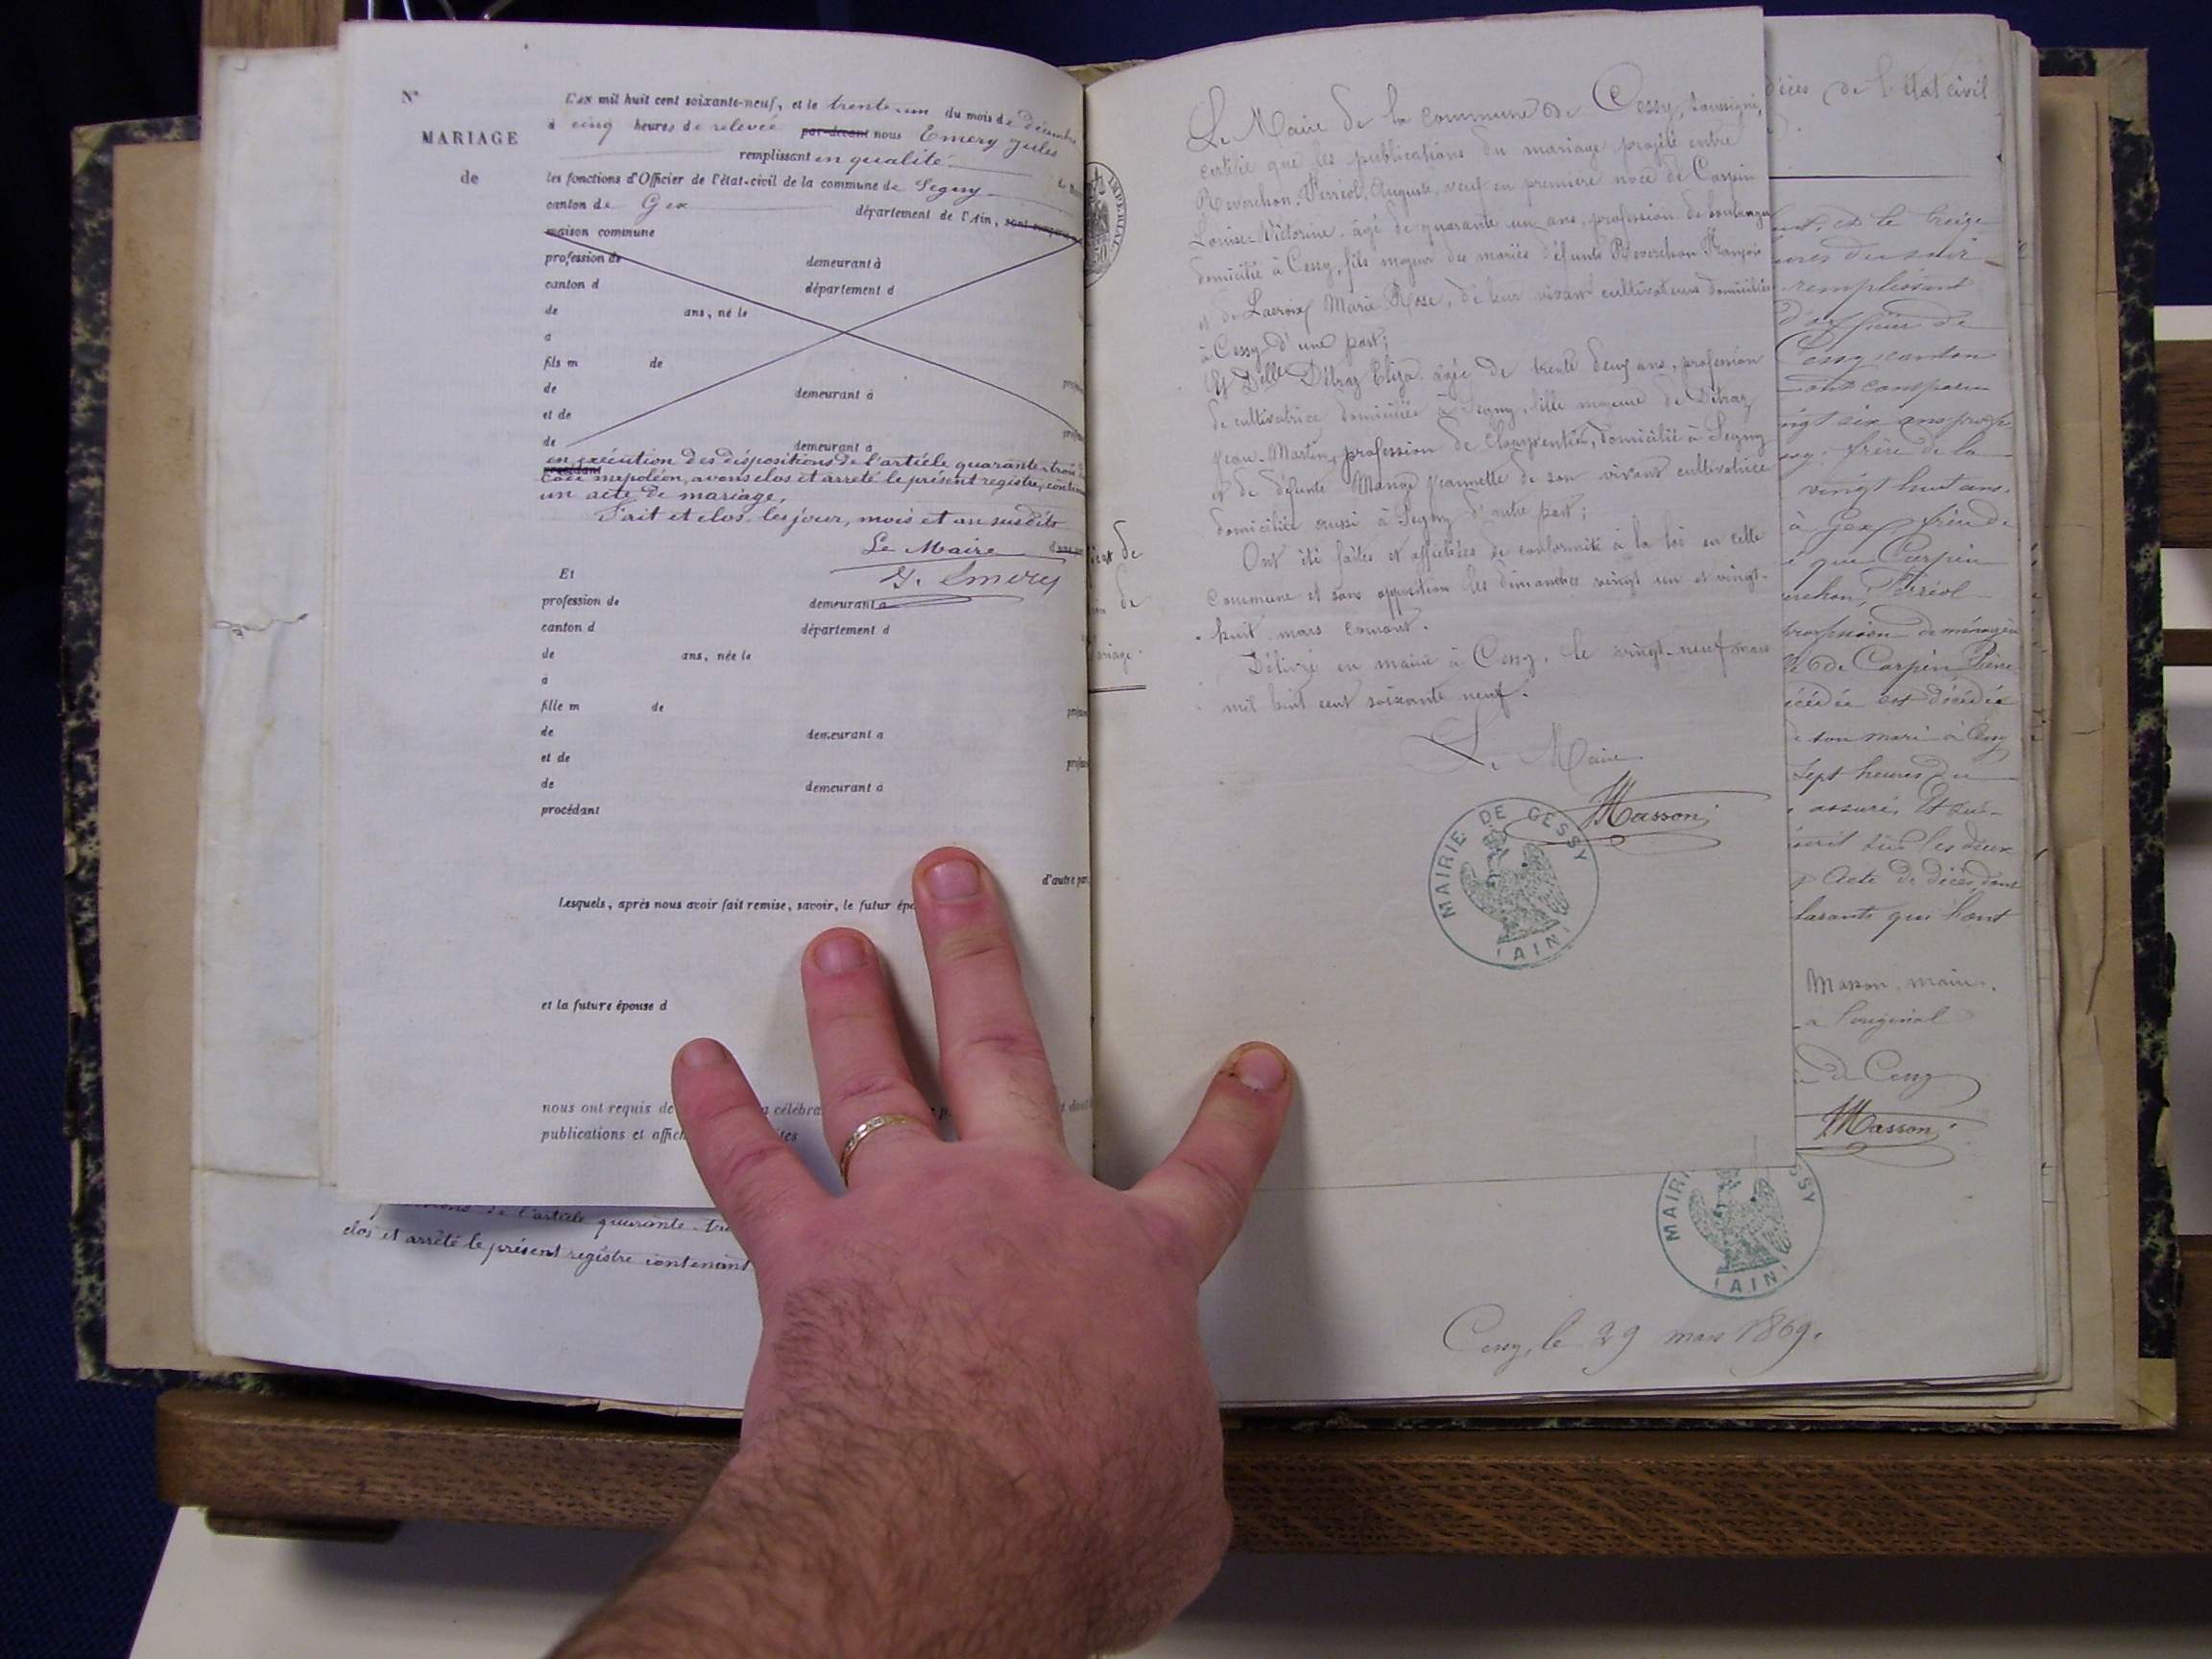 N°
MARIAGE
de
L'an mil huit cent soixante-neuf, et le trente-un du mois de décembre
à cinq heures de relevée par-devant nous Emery Jules
remplissant en qualité
les fonctions d'Officier de l'état-civil de la commune de Segny
canton de Gex département de l'Ain, sont comparus
maison commune
profession de demeurant à
canton d département d
de ans, né le
a
fils m de
de demeurant à
et de
de demeurant a
en exécution des dispositions de l'article quarante-trois
procédant
Code napoléon, avons clos et arrêté le présent registre, contenant
un acte de mariage.
Fait et clos, les jour, mois et an susdits
Le Maire
J. Emery
Et
profession de demeurant a
canton d département d
de ans, née le
à
fille m de
de demeurant a
et de
de demeurant à
procédant
d'autre par
Lesquels, après nous avoir fait remise, savoir, le futur épo
et la future épouse d
nous ont requis de a célébra
publications et affich tes
de l'article quarante-tr
clos et arrêté le présent registre contenant
IMPERIAL
50
Le Maire de la commune de Cessy, soussigné,
certifie que les publications du mariage projeté entre
Reverchon, Ferréol, Auguste, veuf en première noce de Carpin
Louise-Victorine, âgé de quarante un ans, profession de boulanger
domicilié à Cessy, fils majeur des mariés défunts Reverchon François
et de Lacroix Marie-Rose, de leur vivant cultivateurs domiciliés
à Cessy d'une part;
Et Delle Détraz Eliza âgée de trente deux ans, profession
de cultivatrice domiciliée à Segny, fille majeure de Détraz
Jean-Martin, profession de Charpentier, domicilié à Segny
et de défunte Jeannette de son vivant cultivatrice
domiciliée aussi à Segny d'autre part;
Ont été faites et affichées de conformité à la loi en cette
commune et sans opposition les dimanches vingt un et vingt-
huit mars courant.
Délivré en mairie à Cessy, le vingt-neuf mars
mil huit cent soixante neuf.
Le Maire
Masson
MAIRIE DE CESSY
(AIN)
décès de l'état civil
et le treize
heures du soir
remplissant
d'officier de
Cessy canton
ont comparu
vingt six ans prof
frère de la
vingt huit ans
à Gex
que Carpin
Reverchon, Ferréol
profession de ménagère
de Carpin
décédée est décédée
de son mari à Cessy
sept heures du
assuré. Et
écrit sur les deux
Acte de décès dont
déclarants qui l'ont
Masson, maire.
à l'original
de Cessy
Masson
MAIRI SSY
(AIN)
Cessy, le 29 mars 1869.